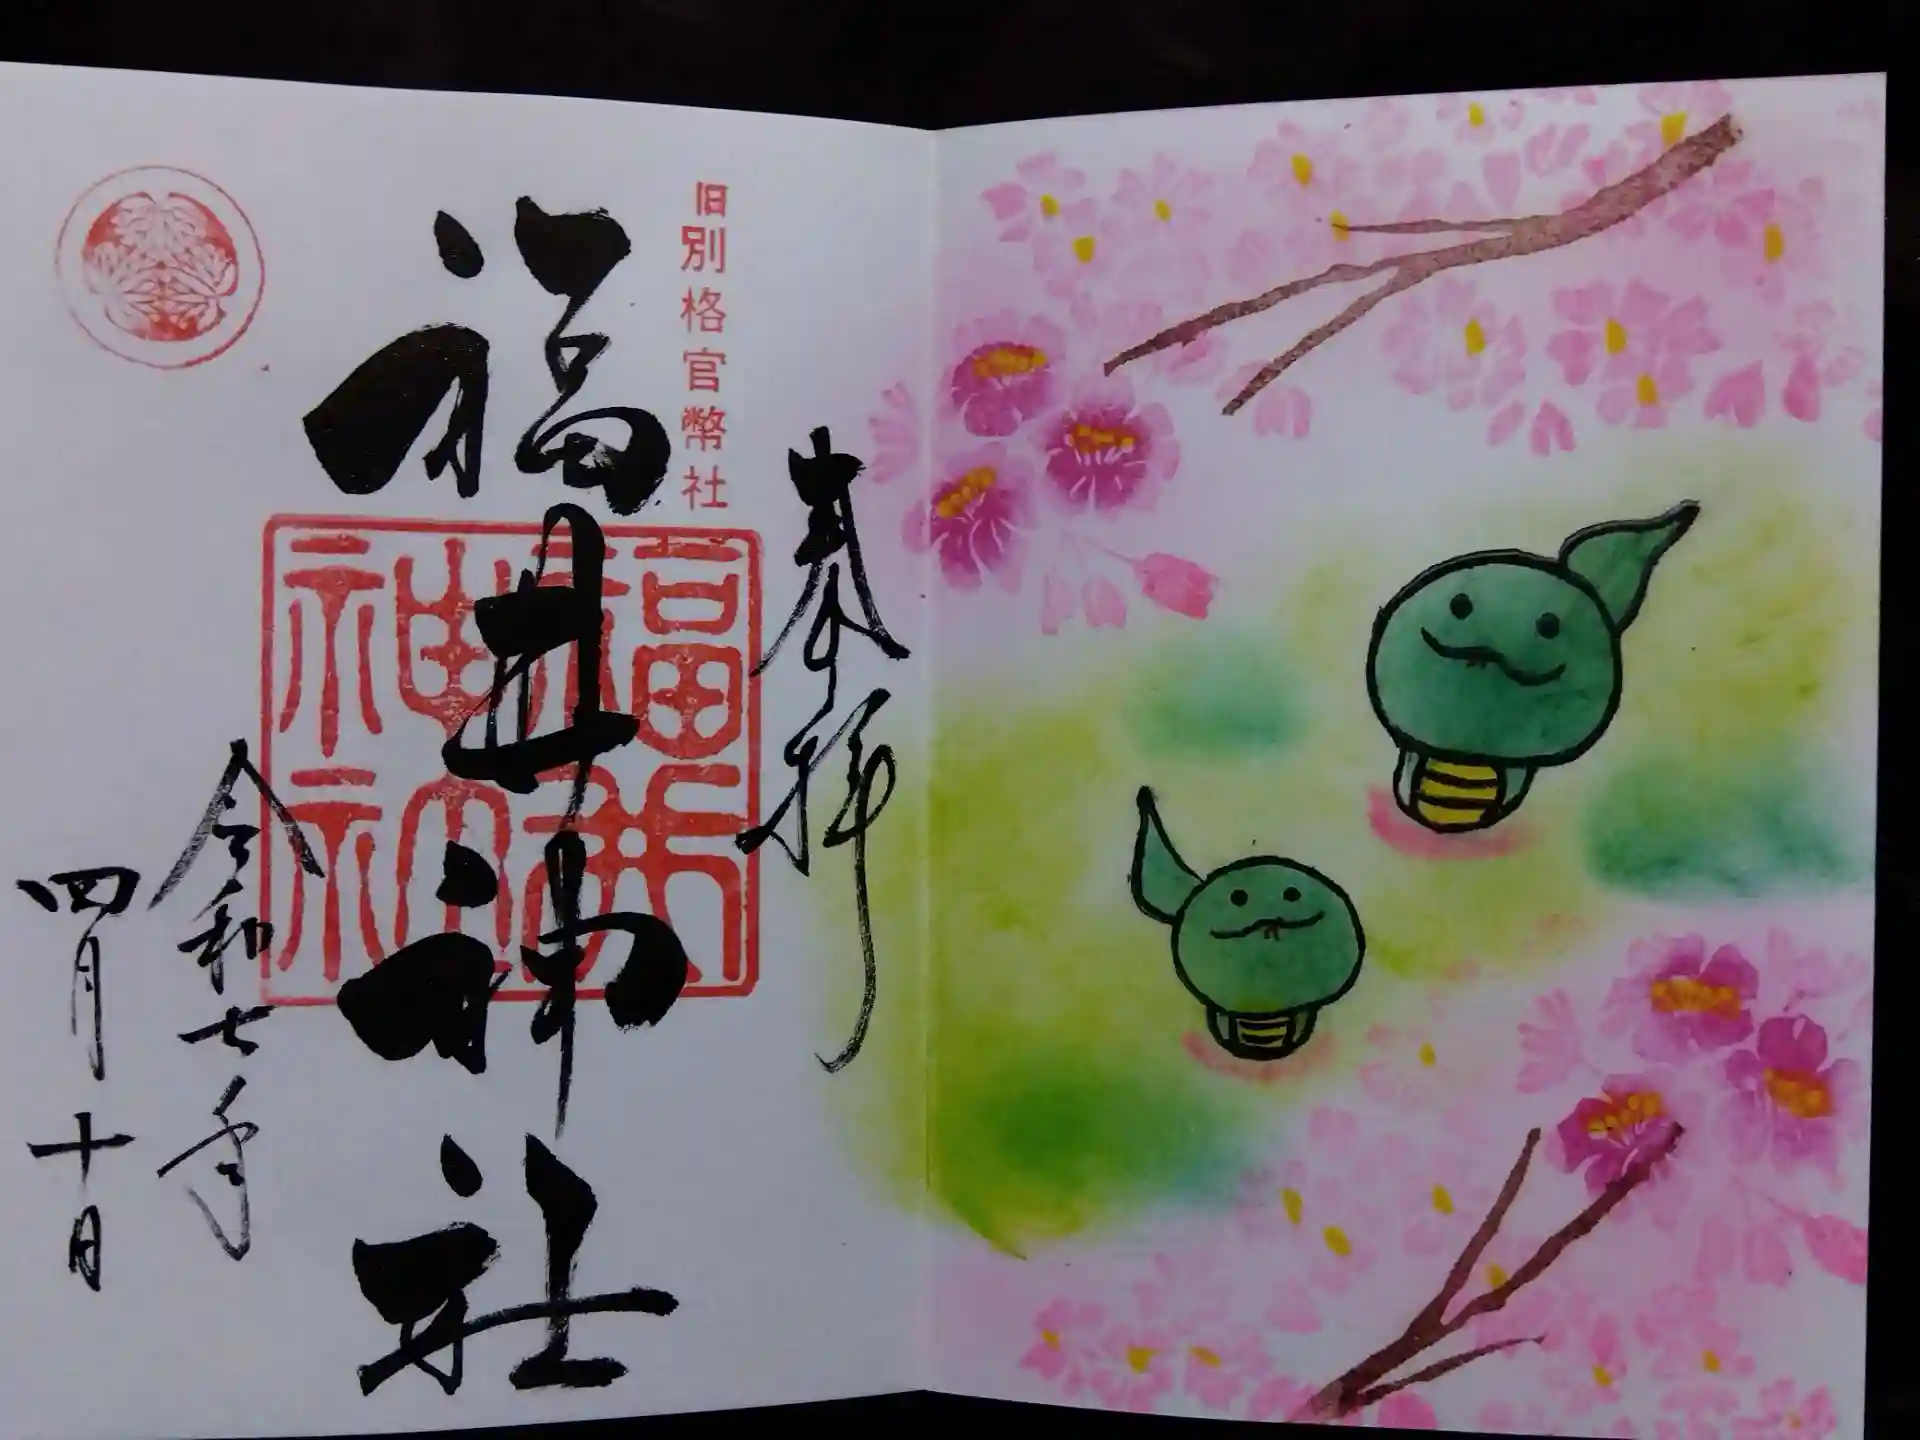 奉拝
旧別格官幣社
福井神社
福井神社神印
令和七年
四月十日